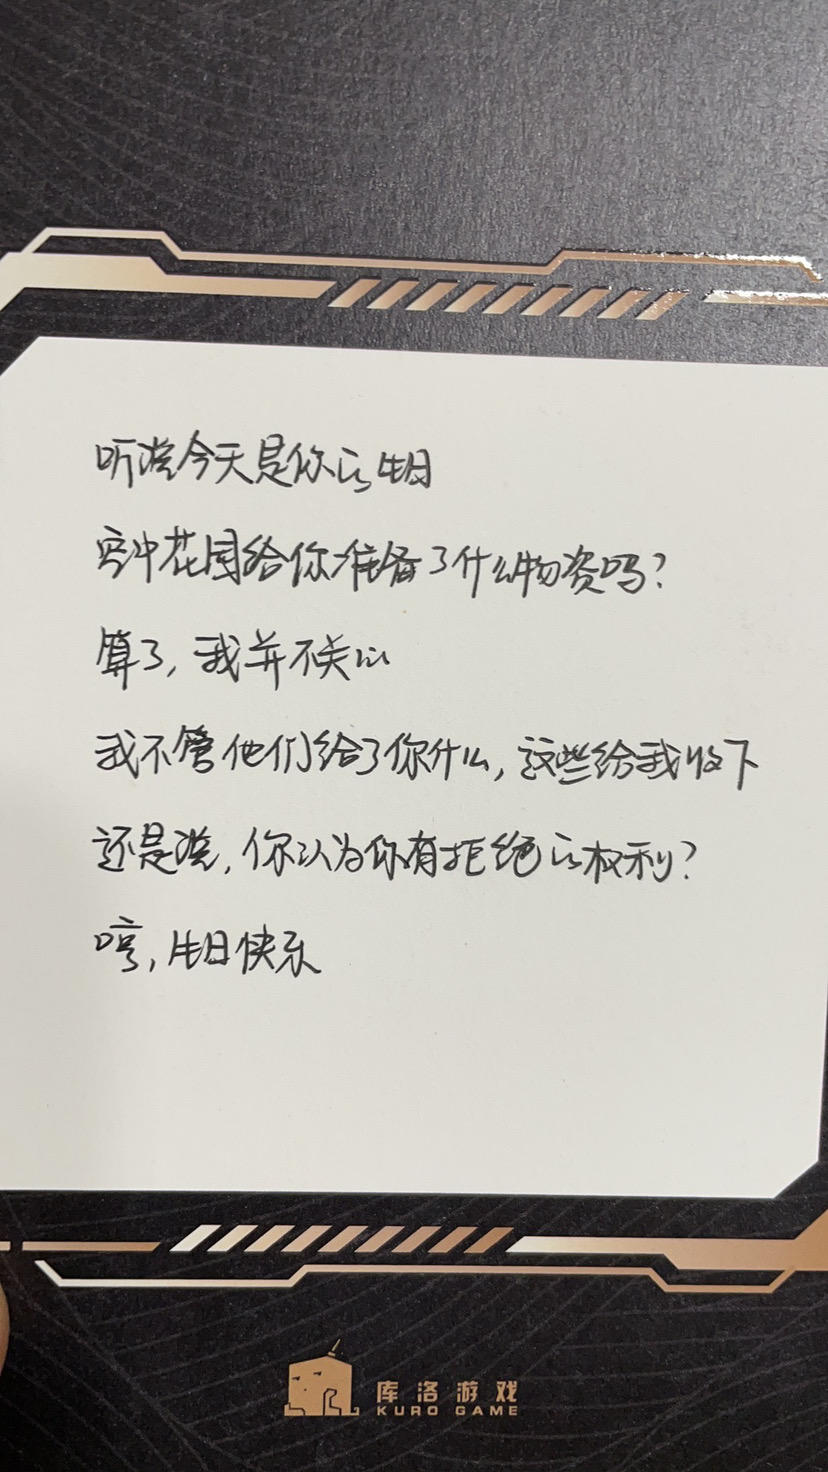 听说今天是你的生日
空中花园给你准备了什么物资吗？
算了，我并不关心
我不管他们给了你什么，这些给我收下
还是说，你认为你有拒绝的权利？
哼，生日快乐
库洛游戏
KURO GAME